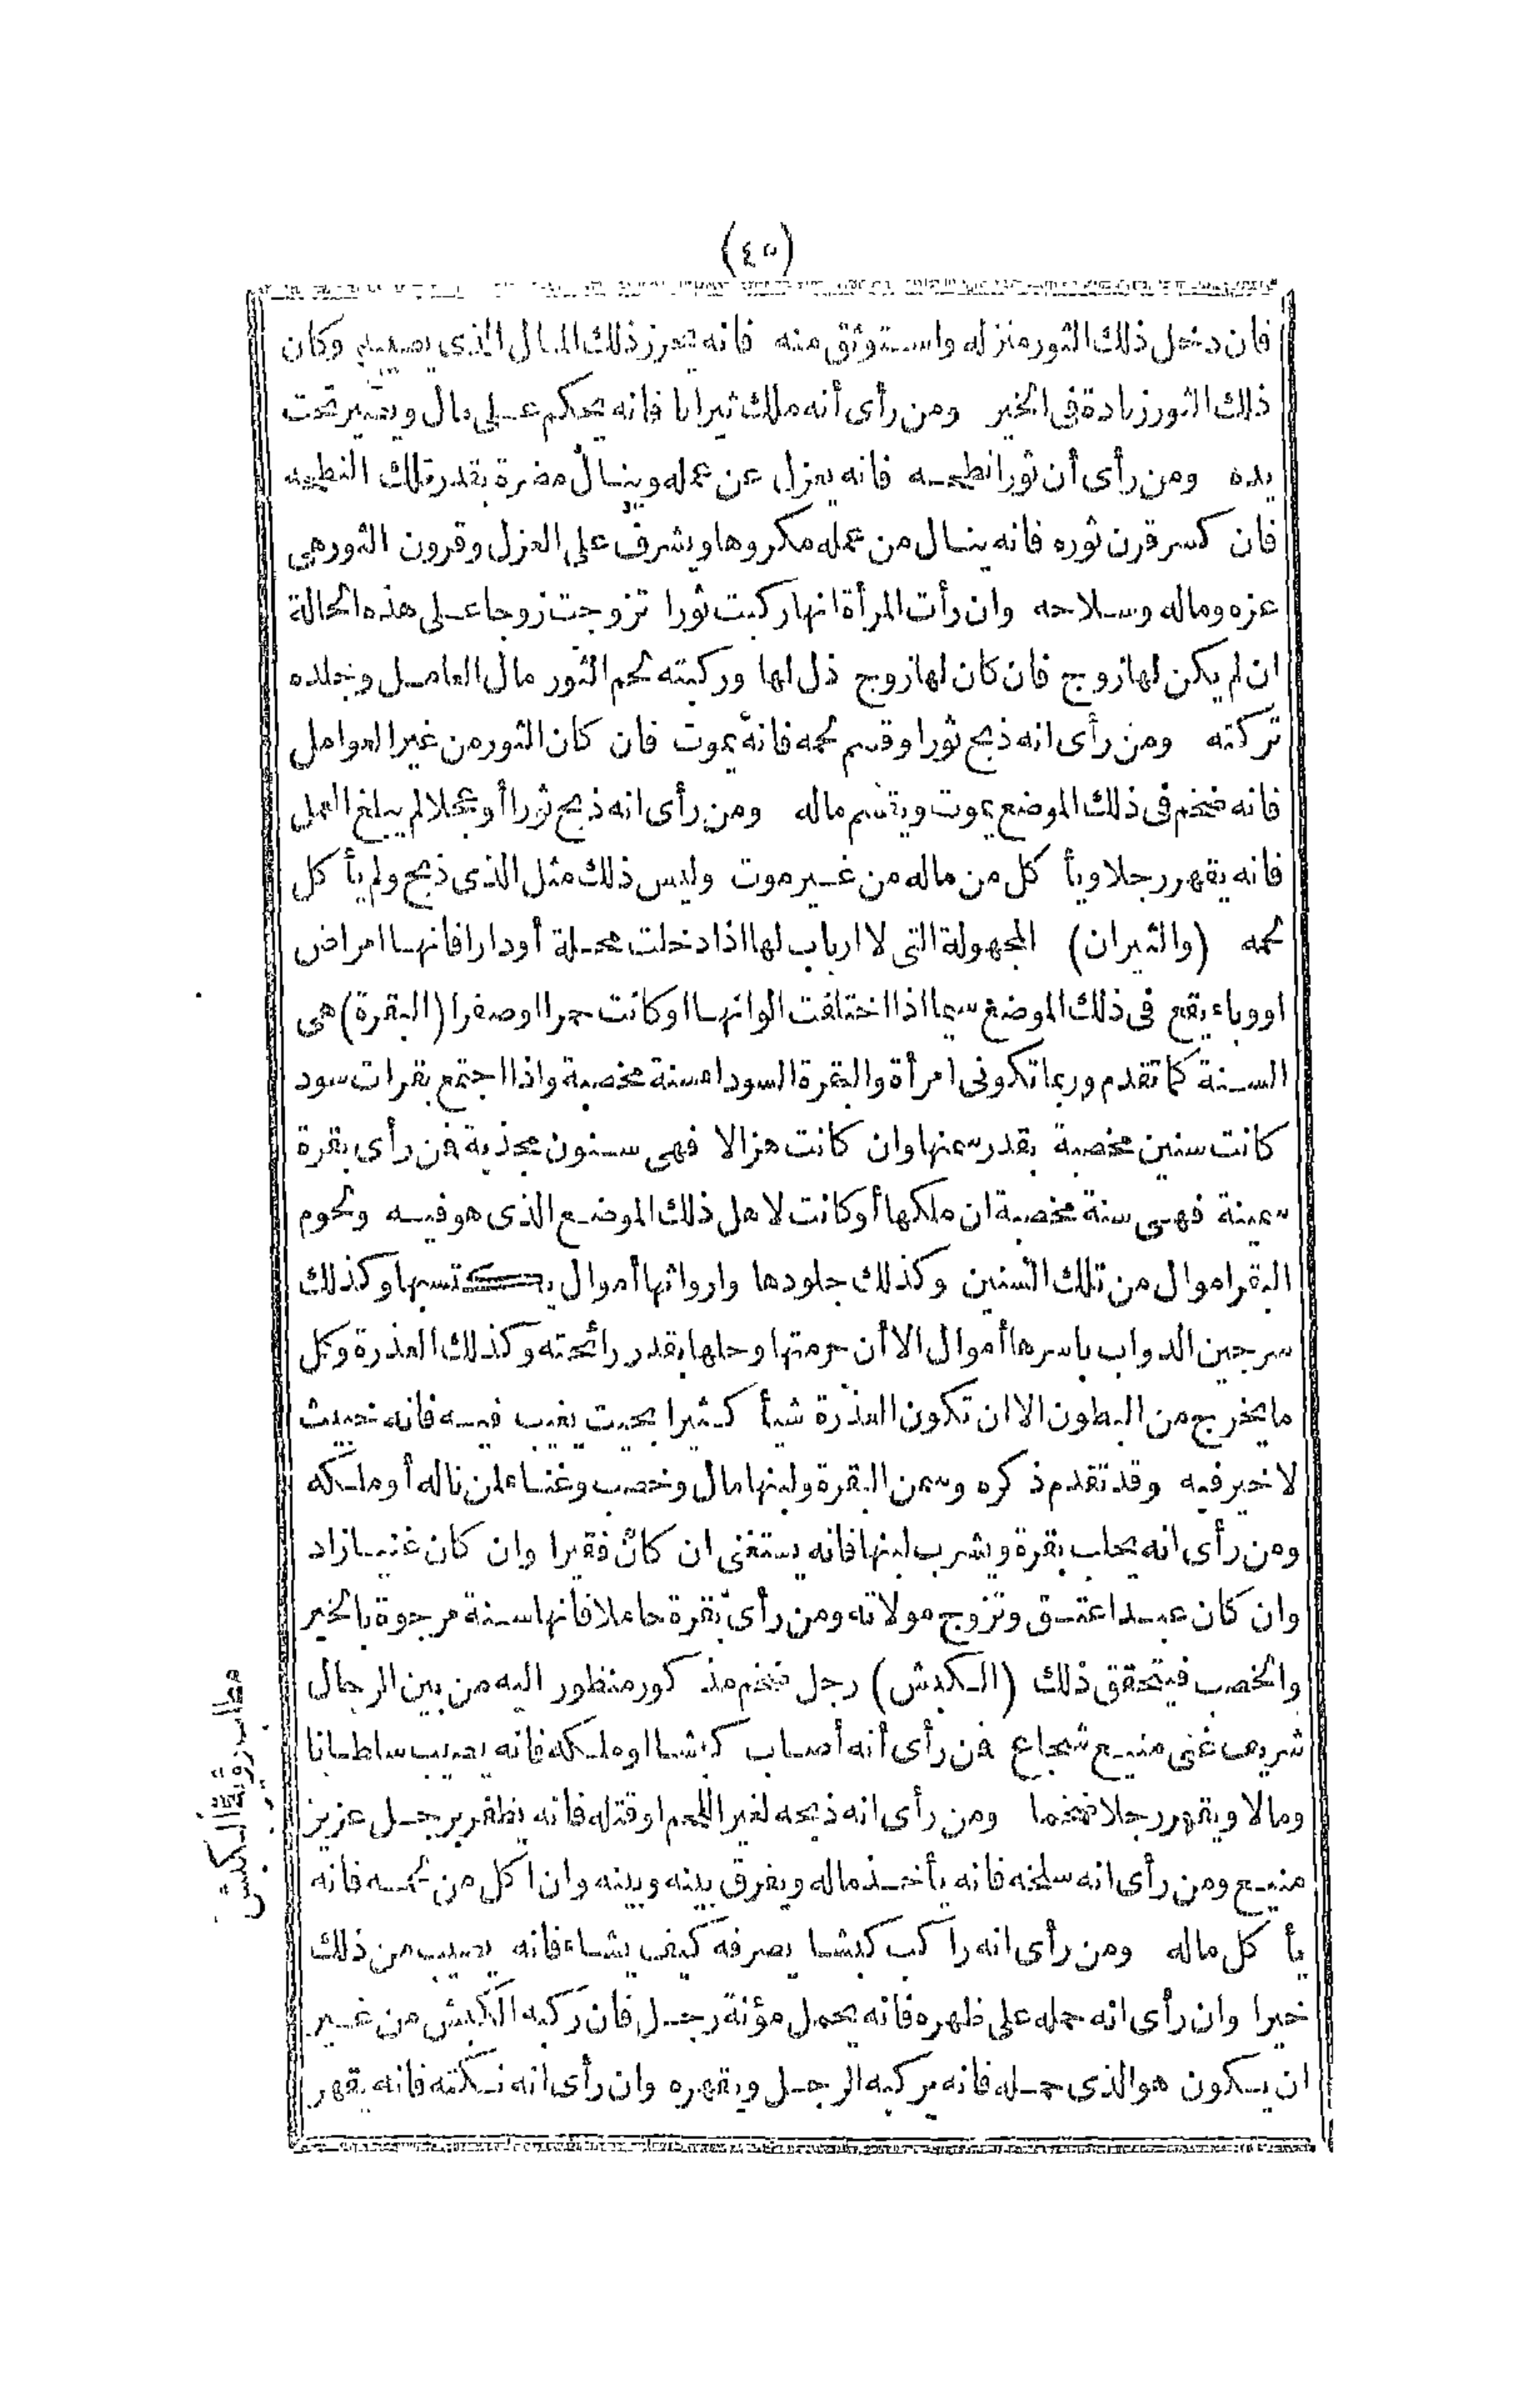 (٤٥)
فان دخل ذلك الثور منزله واستوثق منه فانه يحرز ذلك المال الذى يصيبه وكان
ذلك الثور زيادة فى الخير ومن رأى أنه ملك ثيرانا فانه يحكم على مال ويصير تحت
يده ومن رأى أن ثورا نطحه فانه يعزل عن عمله وينال مضرة بقدر تلك النطحه
فان كسر قرن ثوره فانه ينال من عمله مكروها ويشرف على العزل وقرون الثور هى
عزه وماله وسلاحه وان رأت المرأة انها ركبت ثورا تزوجت زوجا على هذه الحالة
ان لم يكن لها زوج فان كان لها زوج ذل لها وركبته لحم الثور مال العامل وجلده
تركته ومن رأى انه ذبح ثورا وقسم لحمه فانه يموت فان كان الثور من غير العوامل
فانه ضخم فى ذلك الموضع يموت ويقسم ماله ومن رأى انه ذبح ثورا أو عجلا لم يبلغ العمل
فانه يقهر رجلا ويأ كل من ماله من غير موت وليس ذلك مثل الذى ذبح ولم يأ كل
لحمه (والثيران) المجهولة التى لا ارباب لها اذا دخلت محلة أو دارا فانها امراض
او وباء يقع فى ذلك الموضع سيما اذا اختلفت الوانها او كانت حمرا او صفرا (البقرة) هى
السنة كما تقدم وربما تكونى امرأة والبقرة السوداء سنة مخصبة واذا اجتمع بقرات سود
كانت سنين مخصبة بقدر سمنها وان كانت هزالا فهى سنون مجذبة فن رأى بقرة
سمينة فهى سنة مخصبة ان ملكها أو كانت لاهل ذلك الموضع الذى هو فيه ولحوم
البقر اموال من تلك السنين وكذلك جلودها وارواثها أموال يكتسبها وكذلك
سرجين الدواب باسرها أموال الا أن حرمتها وحلها بقدر رائحته وكذلك العذرة وكل
ما يخرج من البطون الا ان تكون العذرة شيأ كثيرا بحيث يغيب فيه فانه خبيث
لا خير فيه وقد تقدم ذكره وسمن البقرة ولبنها مال وخصب وغناء لمن ناله أو ملكه
ومن رأى انه يحلب بقرة ويشرب لبنها فانه يستغنى ان كان فقيرا وان كان غنيا زاد
وان كان عبدا اعتق وتزوج مولاته ومن رأى بقرة حاملا فانها سنة مرجوة بالخير
والخصب فيتحقق ذلك (الكبش) رجل ضخم مذ كور منظور اليه من بين الرجال
شريف غنى منيع شجاع فن رأى أنه أصاب كبشا او ملكه فانه يصيب سلطانا
ومالا ويقهر رجلا ضخما ومن رأى انه ذبحه لغير اللحم او قتله فانه يظفر برجل عزيز
منيع ومن رأى انه سلخه فانه يأخذ ماله ويفرق بينه وبينه وان اكل من لحمه فانه
يأ كل ماله ومن رأى انه راكب كبشا يصرفه كيف يشاء فانه يصيب من ذلك
خيرا وان رأى انه حمله على ظهره فانه يحمل مؤنة رجل فان ركبه الكبش من غير
ان يكون هو الذى حمله فانه يركبه الرجل ويقهره وان رأى انه نكته فانه يقهر
مطلب رؤية الكبش